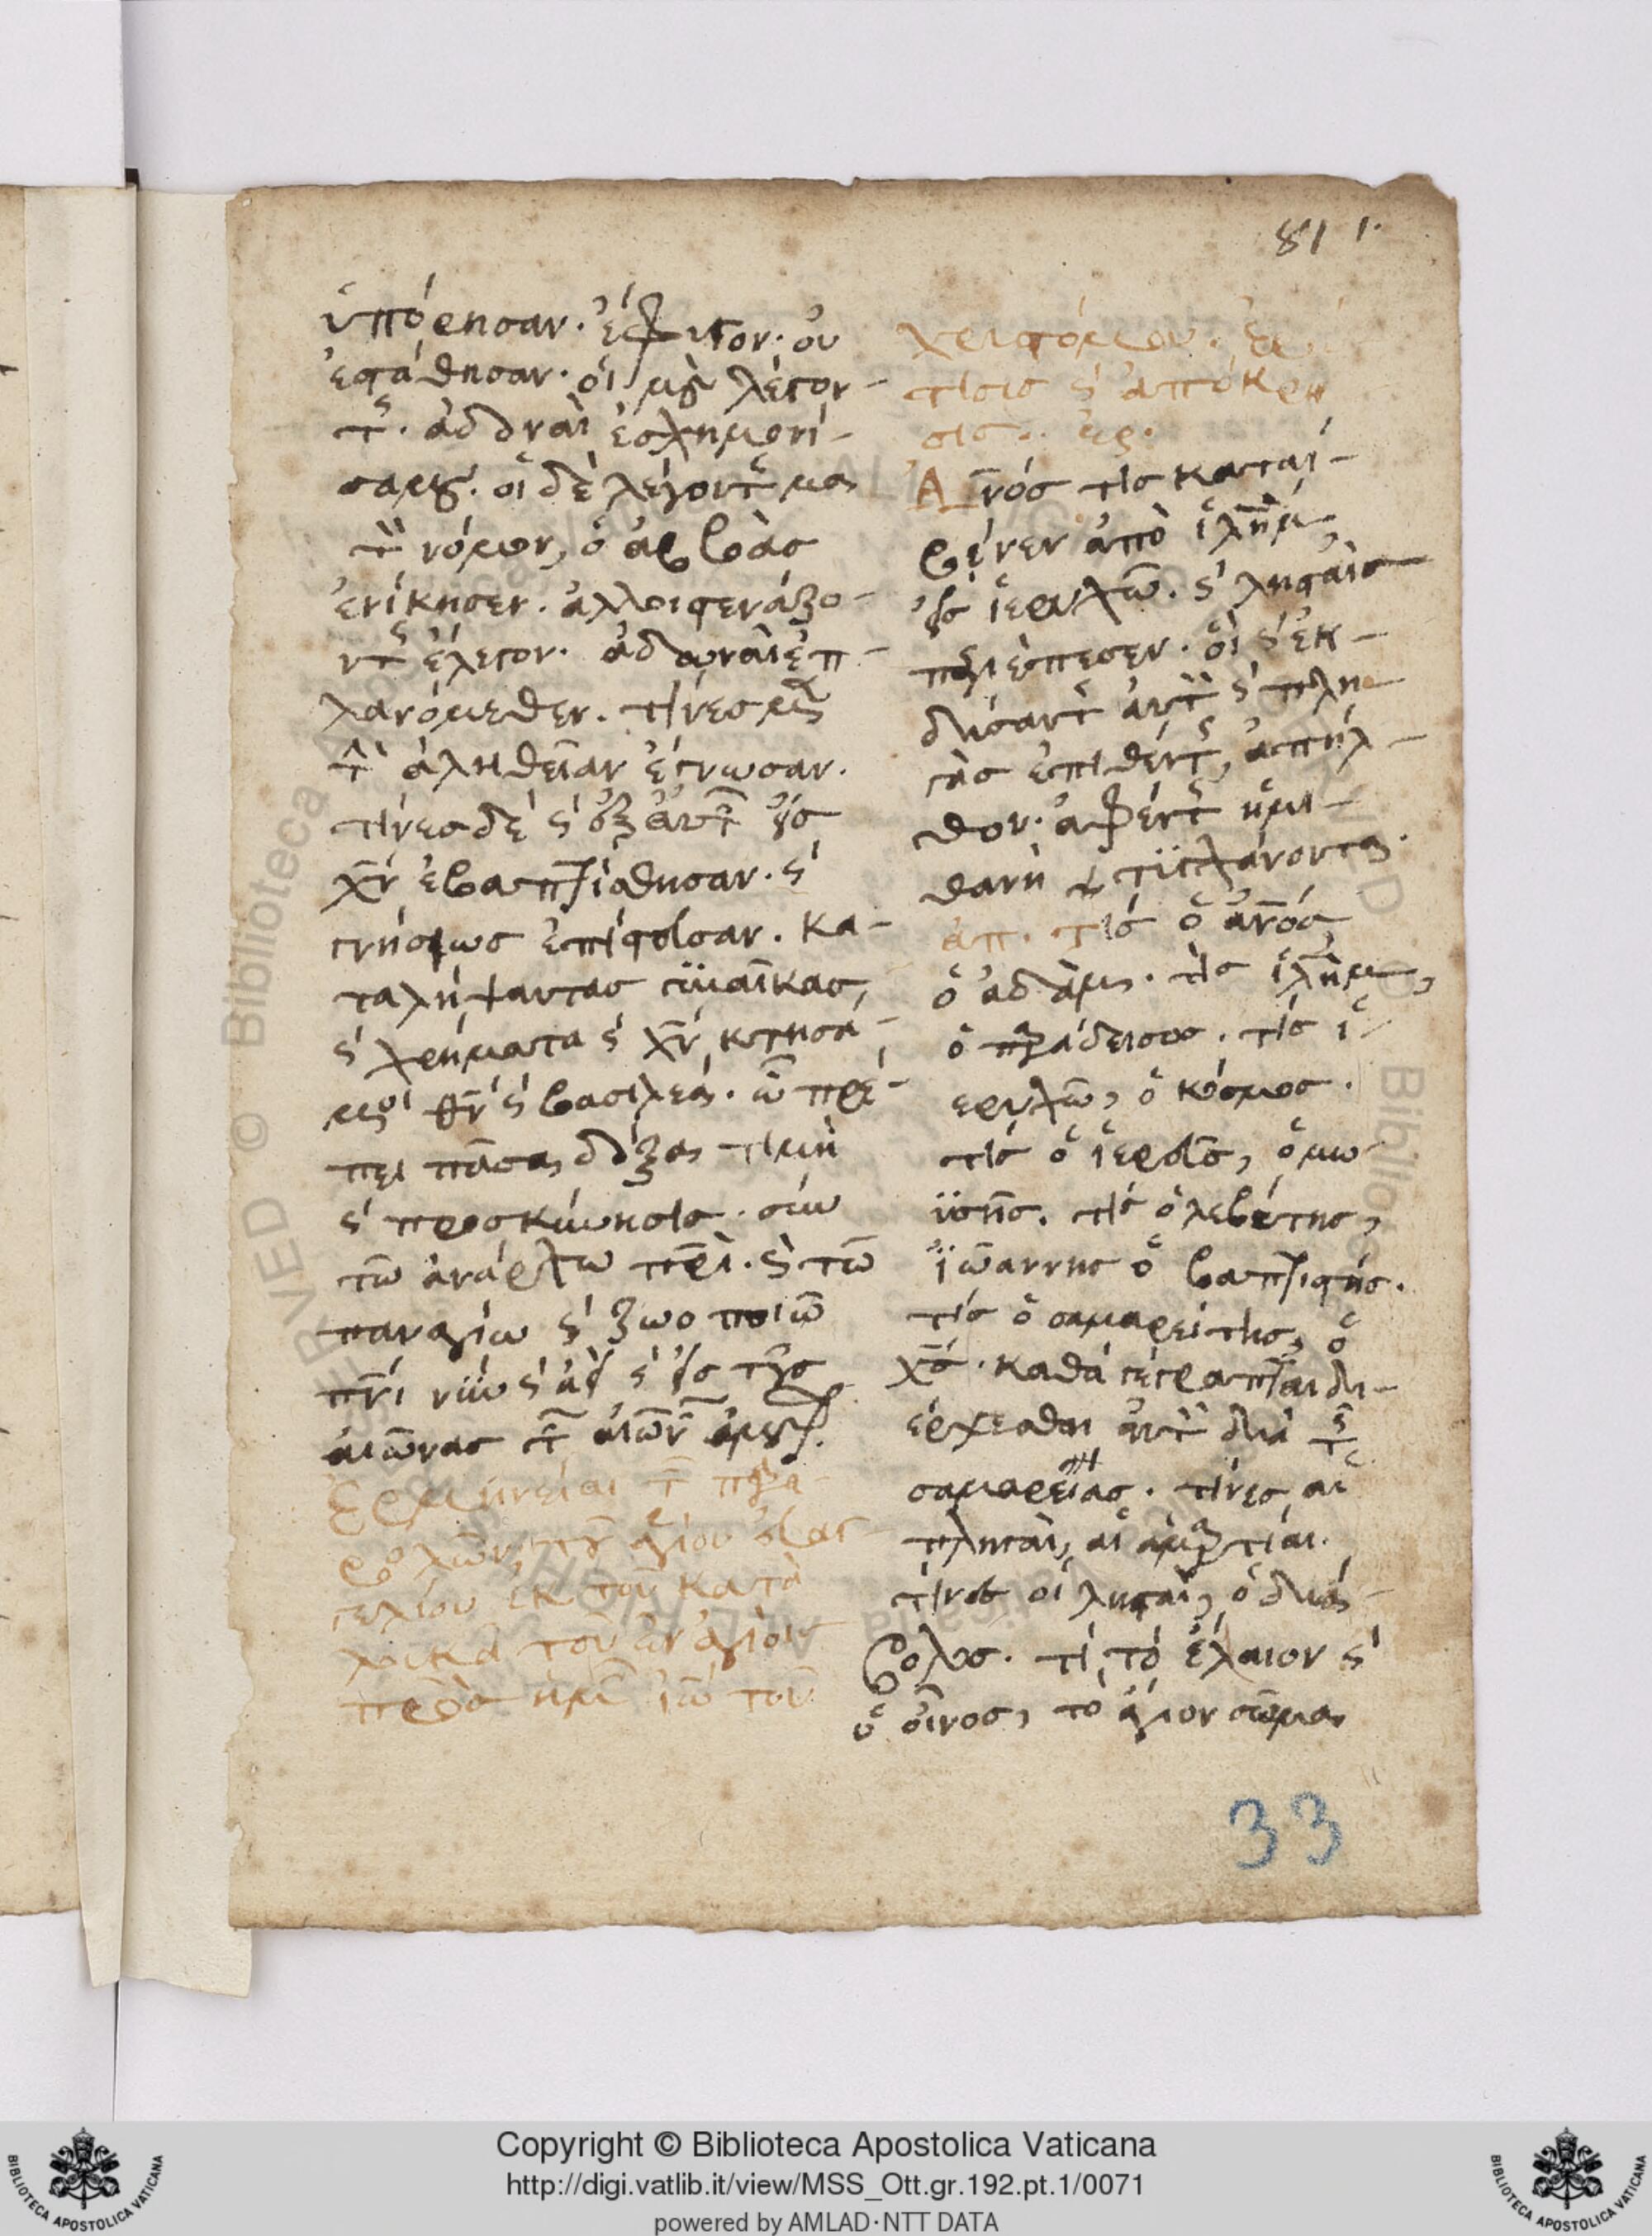 811.
ὑπόρησαν. ἔφυγον. οὐ
ἐστάθησαν. οἱ μὲν λέγον-
τες. ἀδοναῒ ἐσχημονί-
σαμεν. οἱ δὲ λέγοντες μὰ
τὸν νόμον, ὁ ἀββὰς
ἐνίκησεν. ἄλλοι στενάζο-
ντες ἔλεγον. ἀδωναῒ ἐπ-
λανόμεθεν. τινὲς μὲν
τὴν ἀλήθειαν ἔγνωσαν.
τινὲς δὲ καὶ ἐξ αὐτῶν εἰς
χν̄ ἐβαπτίσθησαν. καὶ
γνήσιως ἐπίστευσαν. κα-
ταλήψαντας γυναῖκας,
καὶ χρήματα καὶ χν̄ κτησά-
μενοι θν̄ καὶ βασιλέα. ὦ πρέ-
πει πᾶσα δόξα τιμὴ
καὶ προσκύνησις. σὺν
τῶ ἀνάρχω πρῑ. καὶ τῶ
παναγίω καὶ ζωοποιῶ
πνῑ νῦν καὶ ἀεὶ καὶ εἰς τοὺς
αἰῶνας τῶν αἰώνων ἀμήν.
Ἑρμηνεῖαι τῶν παρα-
βολῶν, τοῦ ἁγίου εὐαγ-
γελίου ἐκ τοῦ κατὰ
λουκᾶ τοῦ ἐν ἁγίοις
πρὸς ἡμῶν ἰω τοῦ
χρυστόμου. ἐρω
τισις καὶ ἀπόκρη
σις. ἐρ.
Ἀνο̄ς τις καταί-
βενεν ἀπὸ ἱλημ̄,
εἰς ἱεριχῶ. καὶ λησταῖς
περιέπεσεν. οἱ καὶ ἐκ-
δύσαντες αὐτὸν καὶ πλη
γὰς ἐπιθέντες, ἀπῆλ-
θον. ἀφέντες ἡμι-
θανῆ τυγχάνοντα.
ἀπ. τίς ὁ ἀνο̄ς,
ὁ ἀδάμ. τίς ἱλημ̄,
ὁ παράδεισος. τίς ἱ-
εριχῶ, ὁ κόσμος.
τίς ὁ ἱερεὺς, ὁ μω
ϋσῆς. τίς ὁ λεβίτης,
ϊωάννης ὁ βαπτιστής.
τίς ὁ σαμαρείτης, ὁ
χς̄. καθὰ γέγραπται δι-
έρχεσθαι αὐτὸν διὰ τῆς
σαμαρείας. τίνες αἱ
πληγαὶ, αἱ ἁμαρτίαι.
τίνες οἱ λησταὶ, ὁ διά-
βολος. τί τὸ ἔλαιον καὶ
ὁ οἶνος, τὸ ἅγιον σῶμα
33
Copyright © Biblioteca Apostolica Vaticana
http://digi.vatlib.it/view/MSS_Ott.gr.192.pt.1/0071
powered by AMLAD·NTT DATA
BIBLIOTECA APOSTOLICA VATICANA
BIBLIOTECA APOSTOLICA VATICANA